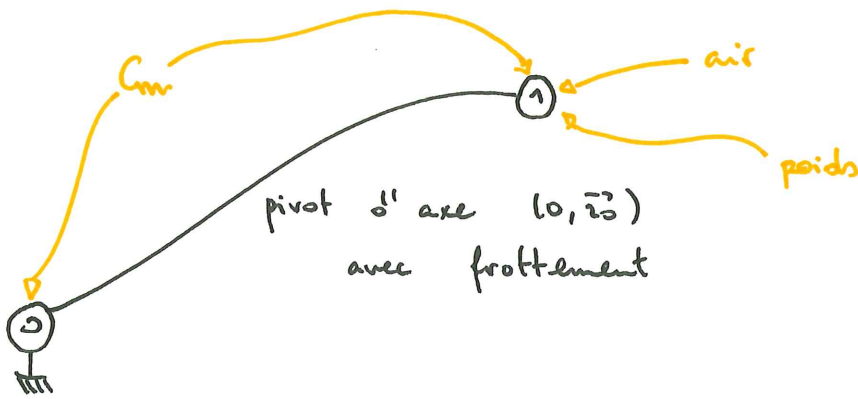 Cm
air
1
poids
pivot d'axe (O, z0)
avec frottement
0